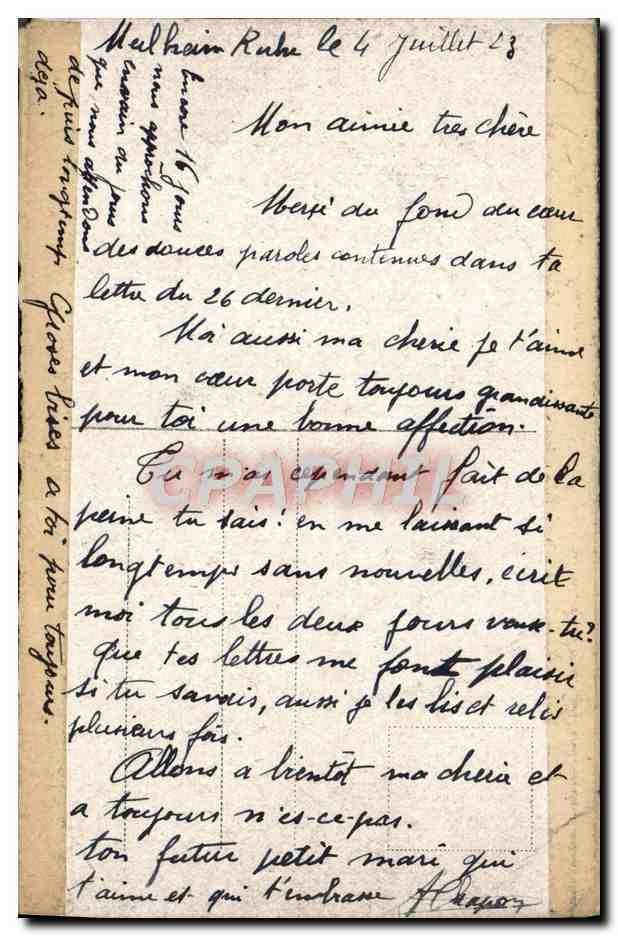 Mulheim Ruhr le 4 Juillet 23
Mon aimée très chère
Mersi du fond du cœur
des douces paroles contenues dans ta
lettre du 26 dernier.
Moi aussi ma cherie je t'aime
et mon cœur porte toujours grandissante
pour toi une bonne affection.
Tu m'as cependant fait de la
peine tu sais! en me laissant si
longtemps sans nouvelles, écrit
moi tous les deux jours veux-tu?
Que tes lettres me font plaisir
si tu savais, aussi je les lis et relis
plusieurs fois.
Allons a bientôt ma cherie et
a toujours n'es-ce-pas.
ton futur petit mari qui
t'aime et qui t'embrasse
Encore 16 jours
nous approchons
du jour
que nous attendons
depuis longtemps
deja.
Groses bises a toi pour toujours.
CPAPHIL